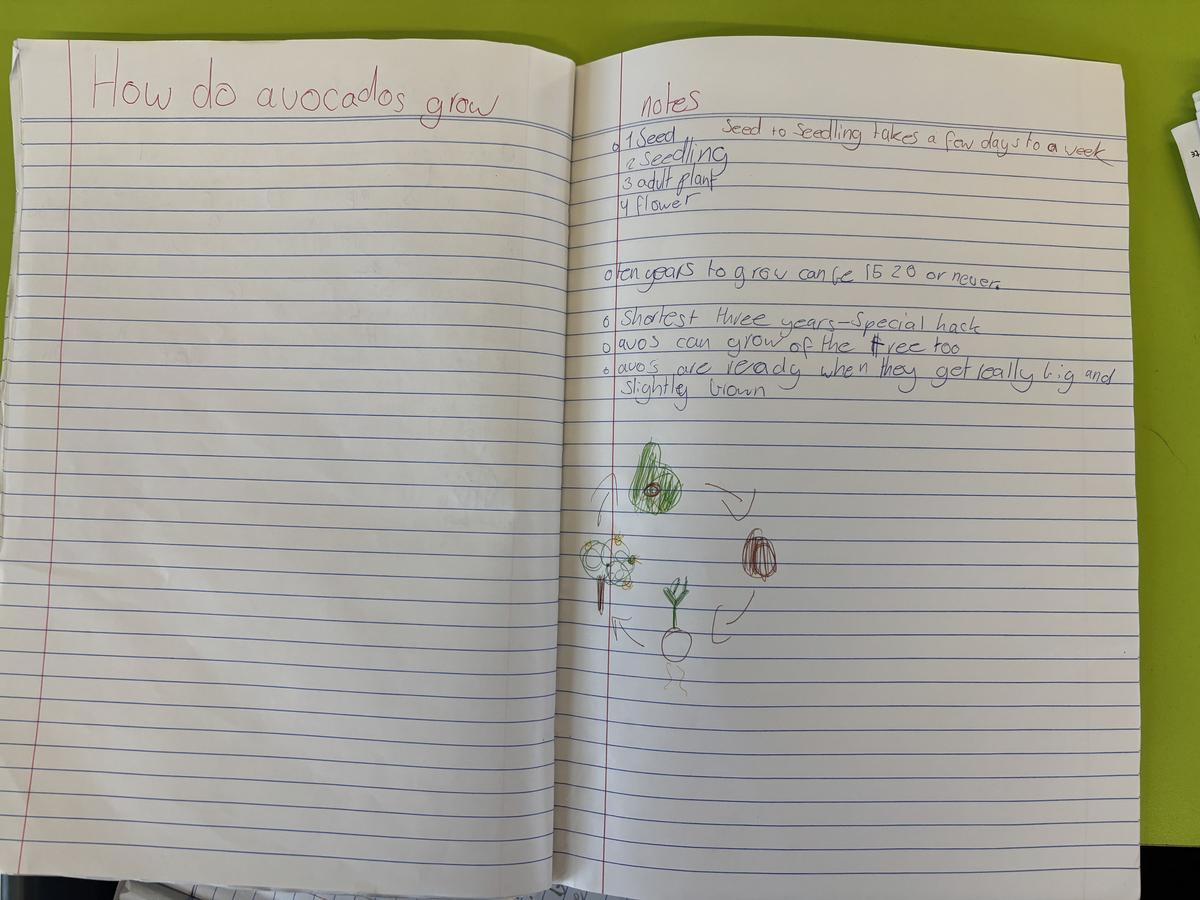 How do avocados grow
notes
o 1 Seed
Seed to Seedling takes a few days to a week
2 Seedling
3 adult plant
4 flower
o ten years to grow can be 15 20 or never.
o Shortest three years-Special hack
o avos can grow of the tree too
o avo's are ready when they get really big and
slightly brown